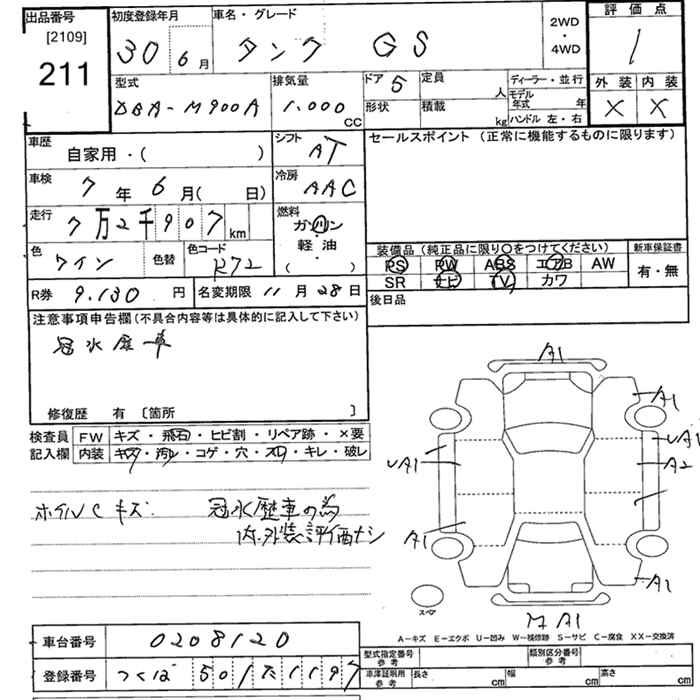 出品番号
[2109]
211
初度登録年月
30年6月
車名・グレード
タンク GS
2WD
・
4WD
評価点
1
外装 内装
X X
型式
DBA-M900A
排気量
1.000
cc
ドア 5
定員
人
形状
積載
kg
ディーラー・並行
モデル
年式 年
ハンドル 左・右
車歴
自家用・( )
シフト
AT
セールスポイント (正常に機能するものに限ります)
車検
7年6月( 日)
冷房
AAC
走行
7万2千907km
燃料
ガソリン
・
軽油
( )
色
ワイン
色替
色コード
R72
装備品 (純正品に限り○をつけてください)
新車保証書
PS PW ABS エアB AW
有・無
SR ナビ TV カワ
R券 9.130 円
名変期限 11月28日
後日品
注意事項申告欄 (不具合内容等は具体的に記入して下さい)
冠水歴車
修復歴 有 〔箇所 〕
検査員
記入欄
FW キズ・飛石・ヒビ割・リペア跡・×要
内装 キズ・汚レ・コゲ・穴・スレ・キレ・破レ
ホイルCキズ 冠水歴車の為
内.外装評価ナシ
A1
A1
UA1
UA1
A2
A1
A1
スペア
A1
A-キズ E-エクボ U-凹み W-補修跡 S-サビ C-腐食 XX-交換済
車台番号
0208120
登録番号
つくば 501 た 1197
型式指定番号
参考
類別区分番号
参考
車庫証明用
参考
長さ cm
幅 cm
高さ cm